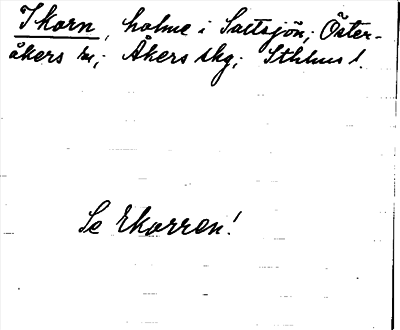 Ikorn, holme i Saltsjön; Öster-
åkers sn; Åkers skg; Sthlms l.
Se Ekorren!